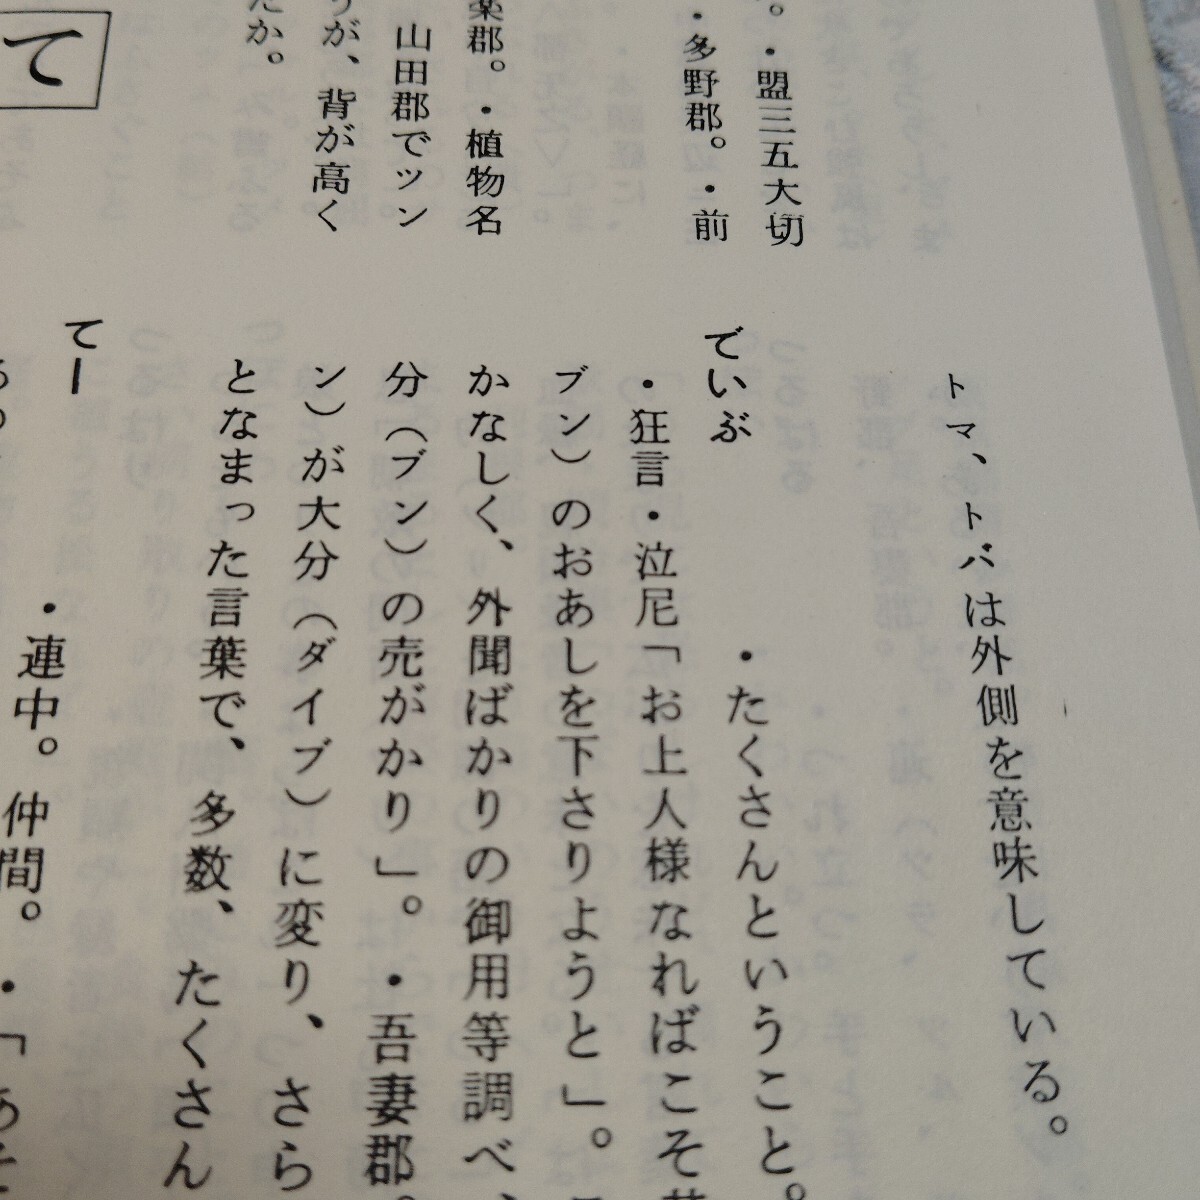 。・盟三五大切
・多野郡。・前
楽郡。・植物名
山田郡でッン
が、背が高く
たか。
て
トマ、トバは外側を意味している。
でいぶ　・たくさんということ。
・狂言・泣尼「お上人様なればこそ
ブン)のおあしを下さりようと」。
かなしく、外聞ばかりの御用等調べ、
分(ブン)の売がかり」。・吾妻郡。
ン)が大分(ダイブ)に変り、さら
となまった言葉で、多数、たくさん
てー　・連中。仲間。・「あそ